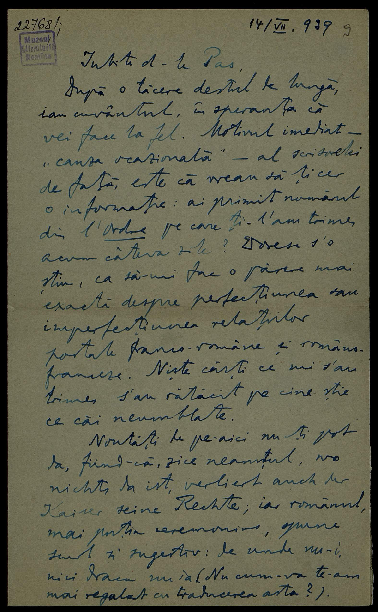 22768/1
14/VII.939
9
Muzeul
Literaturii
Române
Iubite d-le Pas,
După o tăcere destul de lungă,
iau cuvântul, în speranța că
vei face la fel. Motivul imediat –
„cauza ocazională” – al scrisorii
de față, este că vreau să-ți cer
o informație: ai primit numărul
din l'Ordre pe care ți-l'am trimes
acum câteva zile? Doresc s'o
știu, ca să-mi fac o părere mai
exactă despre perfecțiunea sau
imperfecțiunea relațiilor
poștale franco-române și româno-
franceze. Niște cărți ce mi s'au
trimes s'au rătăcit pe cine știe
ce căi neumblate.
Noutăți de pe-aici nu-ți pot
da, fiind-că, zice neamțul, wo
nichts da ist, verliert auch der
Kaiser seine Rechte; iar românul,
mai puțin ceremonios, spune
scurt și sugestiv: de unde nu-i,
nici dracu nu ia (Nu cum-va te-am
mai regalat cu traducerea asta?).